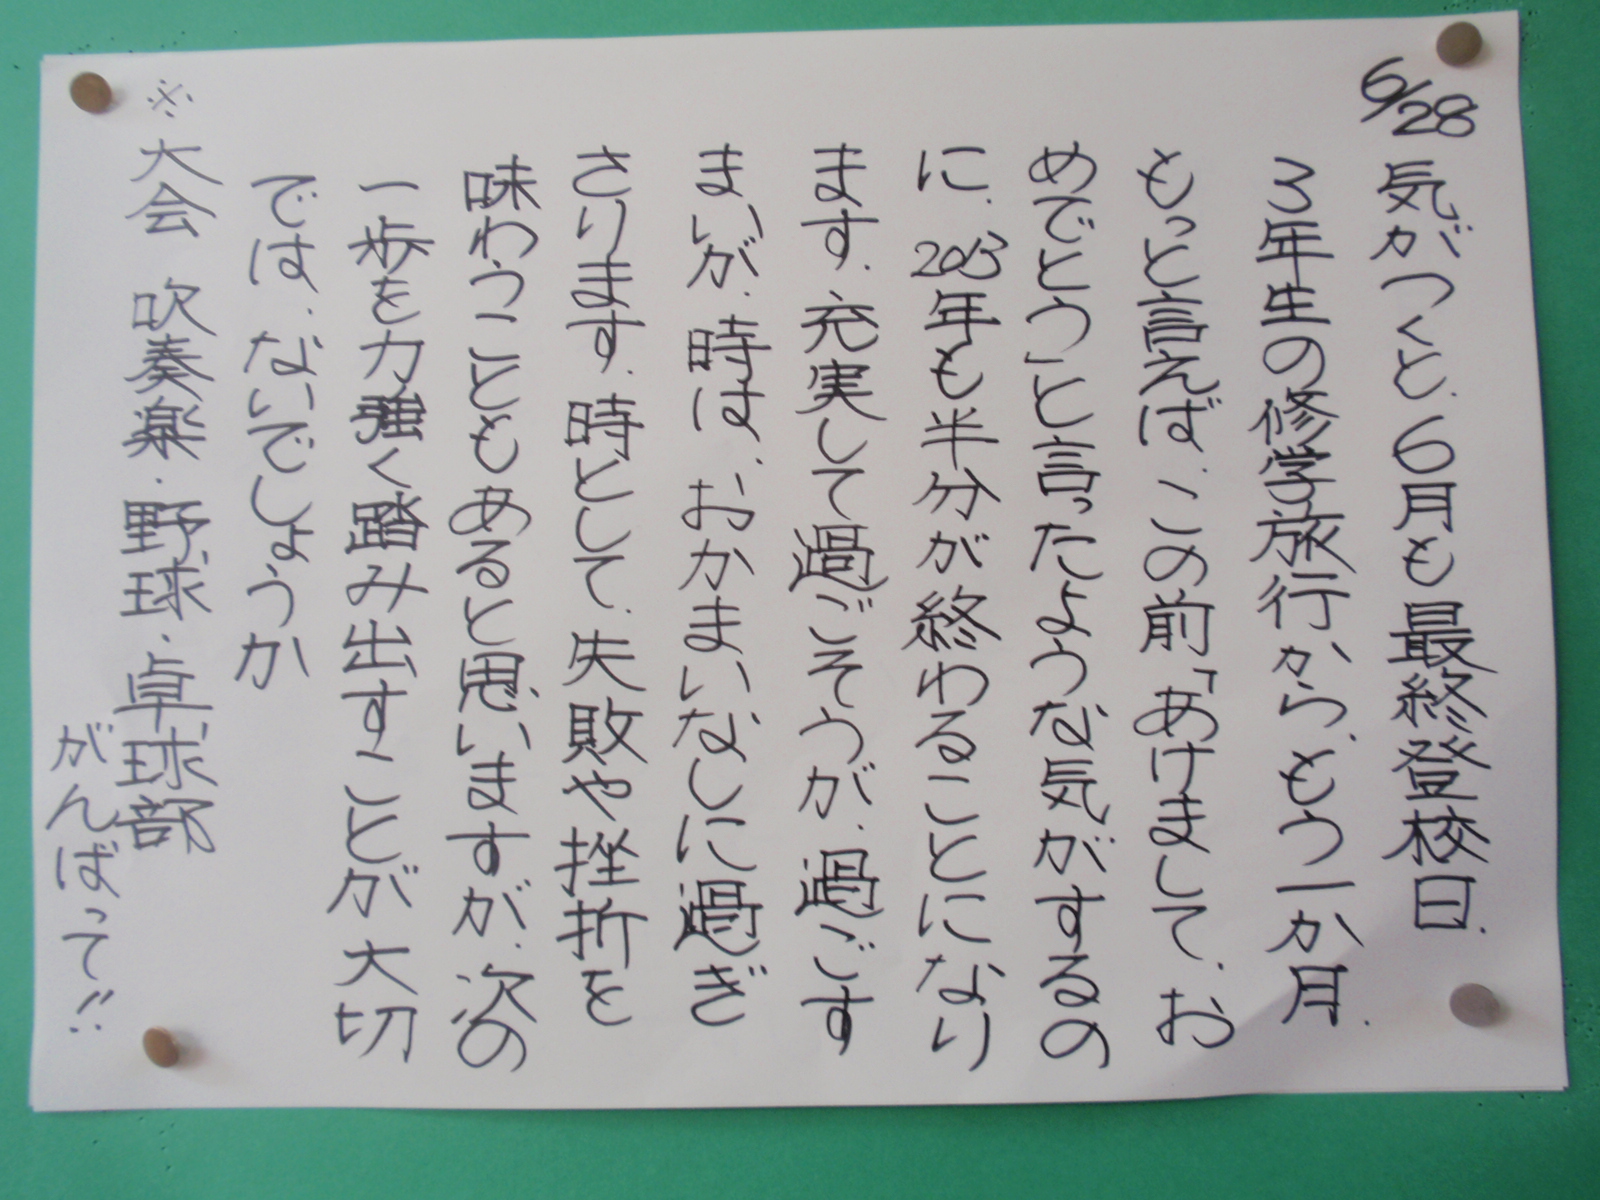 6/28
気がつくと、6月も最終登校日。
3年生の修学旅行から、もう一か月。
もっと言えば、この前「あけまして、お
めでとう」と言ったような気がするの
に、2013年も半分が終わることになり
ます。充実して過ごそうが、過ごす
まいが、時は、おかまいなしに過ぎ
さります。時として、失敗や挫折を
味わうこともあると思いますが、次の
一歩を力強く踏み出すことが大切
では、ないでしょうか
※大会 吹奏楽・野球・卓球部
がんばって!!